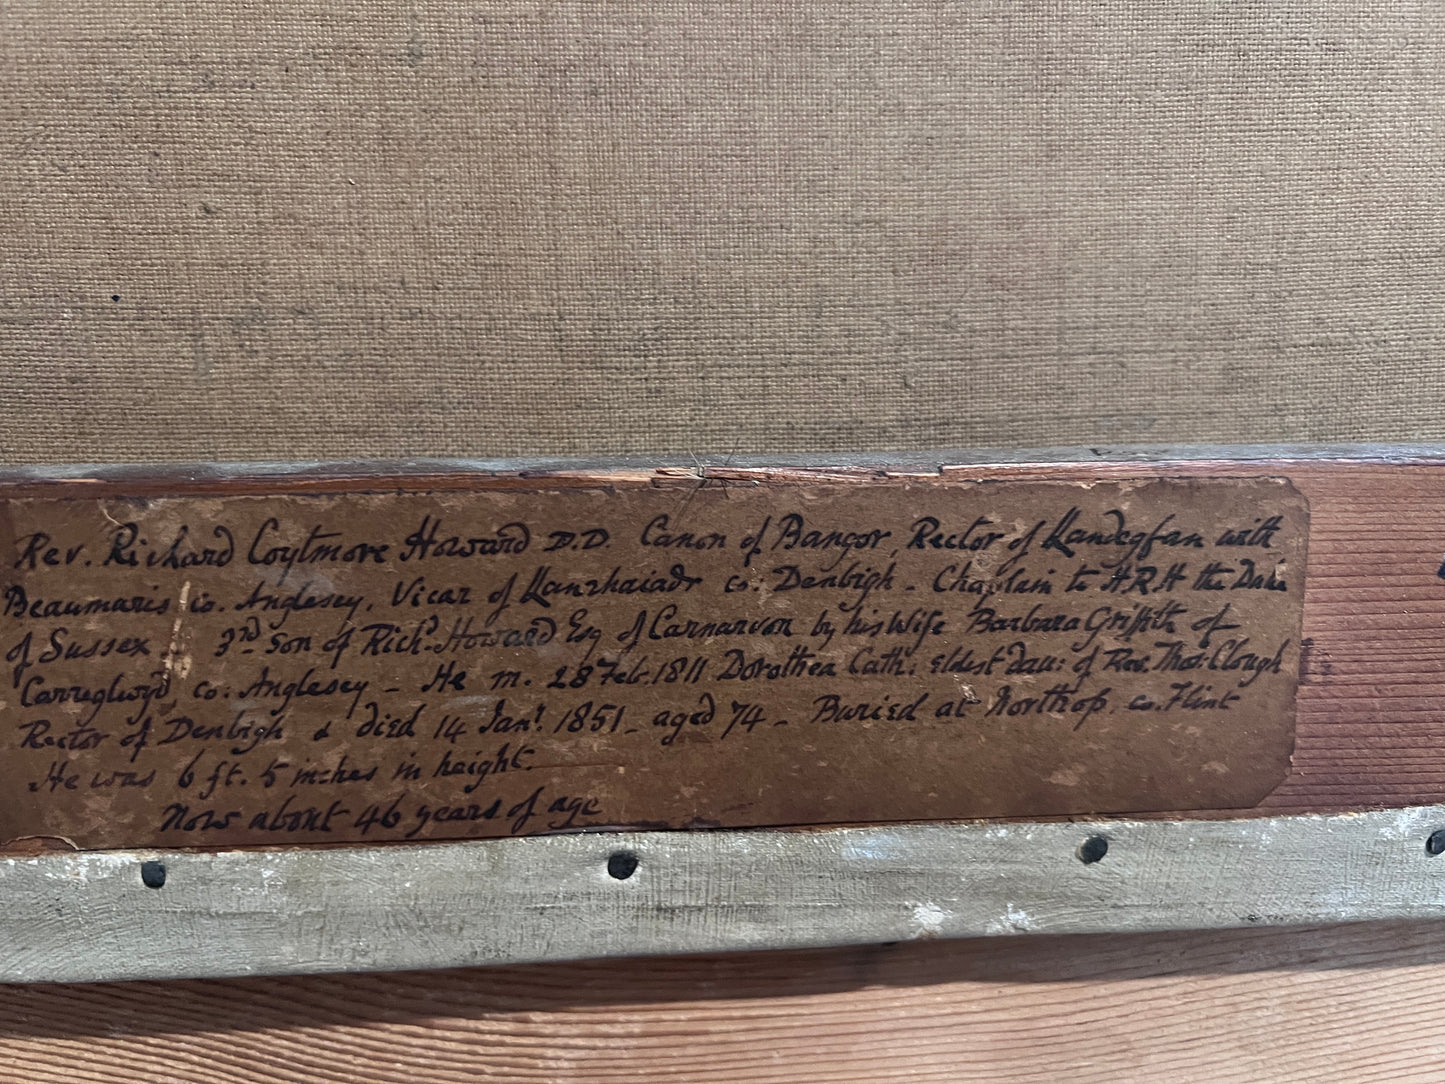 Rev. Richard Coytmore Howard D.D. Canon of Bangor, Rector of Llandegfan with
Beaumaris co. Anglesey, Vicar of Llanrhaiadr co: Denbigh - Chaplain to HRH the Duke
of Sussex - 3rd son of Richd. Howard Esq of Carnarvon by his Wife Barbara Griffith of
Carreglwyd, co: Anglesey - He m. 28 Feb. 1811 Dorothea Cath: eldest dau: of Rev. Thos: Clough
Rector of Denbigh & died 14 Jany. 1851 - aged 74 - Buried at Northop, co. Flint
He was 6 ft. 5 inches in height.
Now about 46 years of age